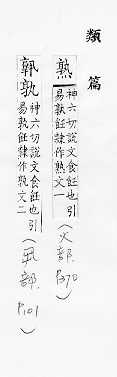 類篇
熟 神六切說文食飪也引
易孰飪隸作熟文一(火部 P370)
𩱧孰 神六切說文食飪也引
易孰飪隸作孰文二(丮部 P101)